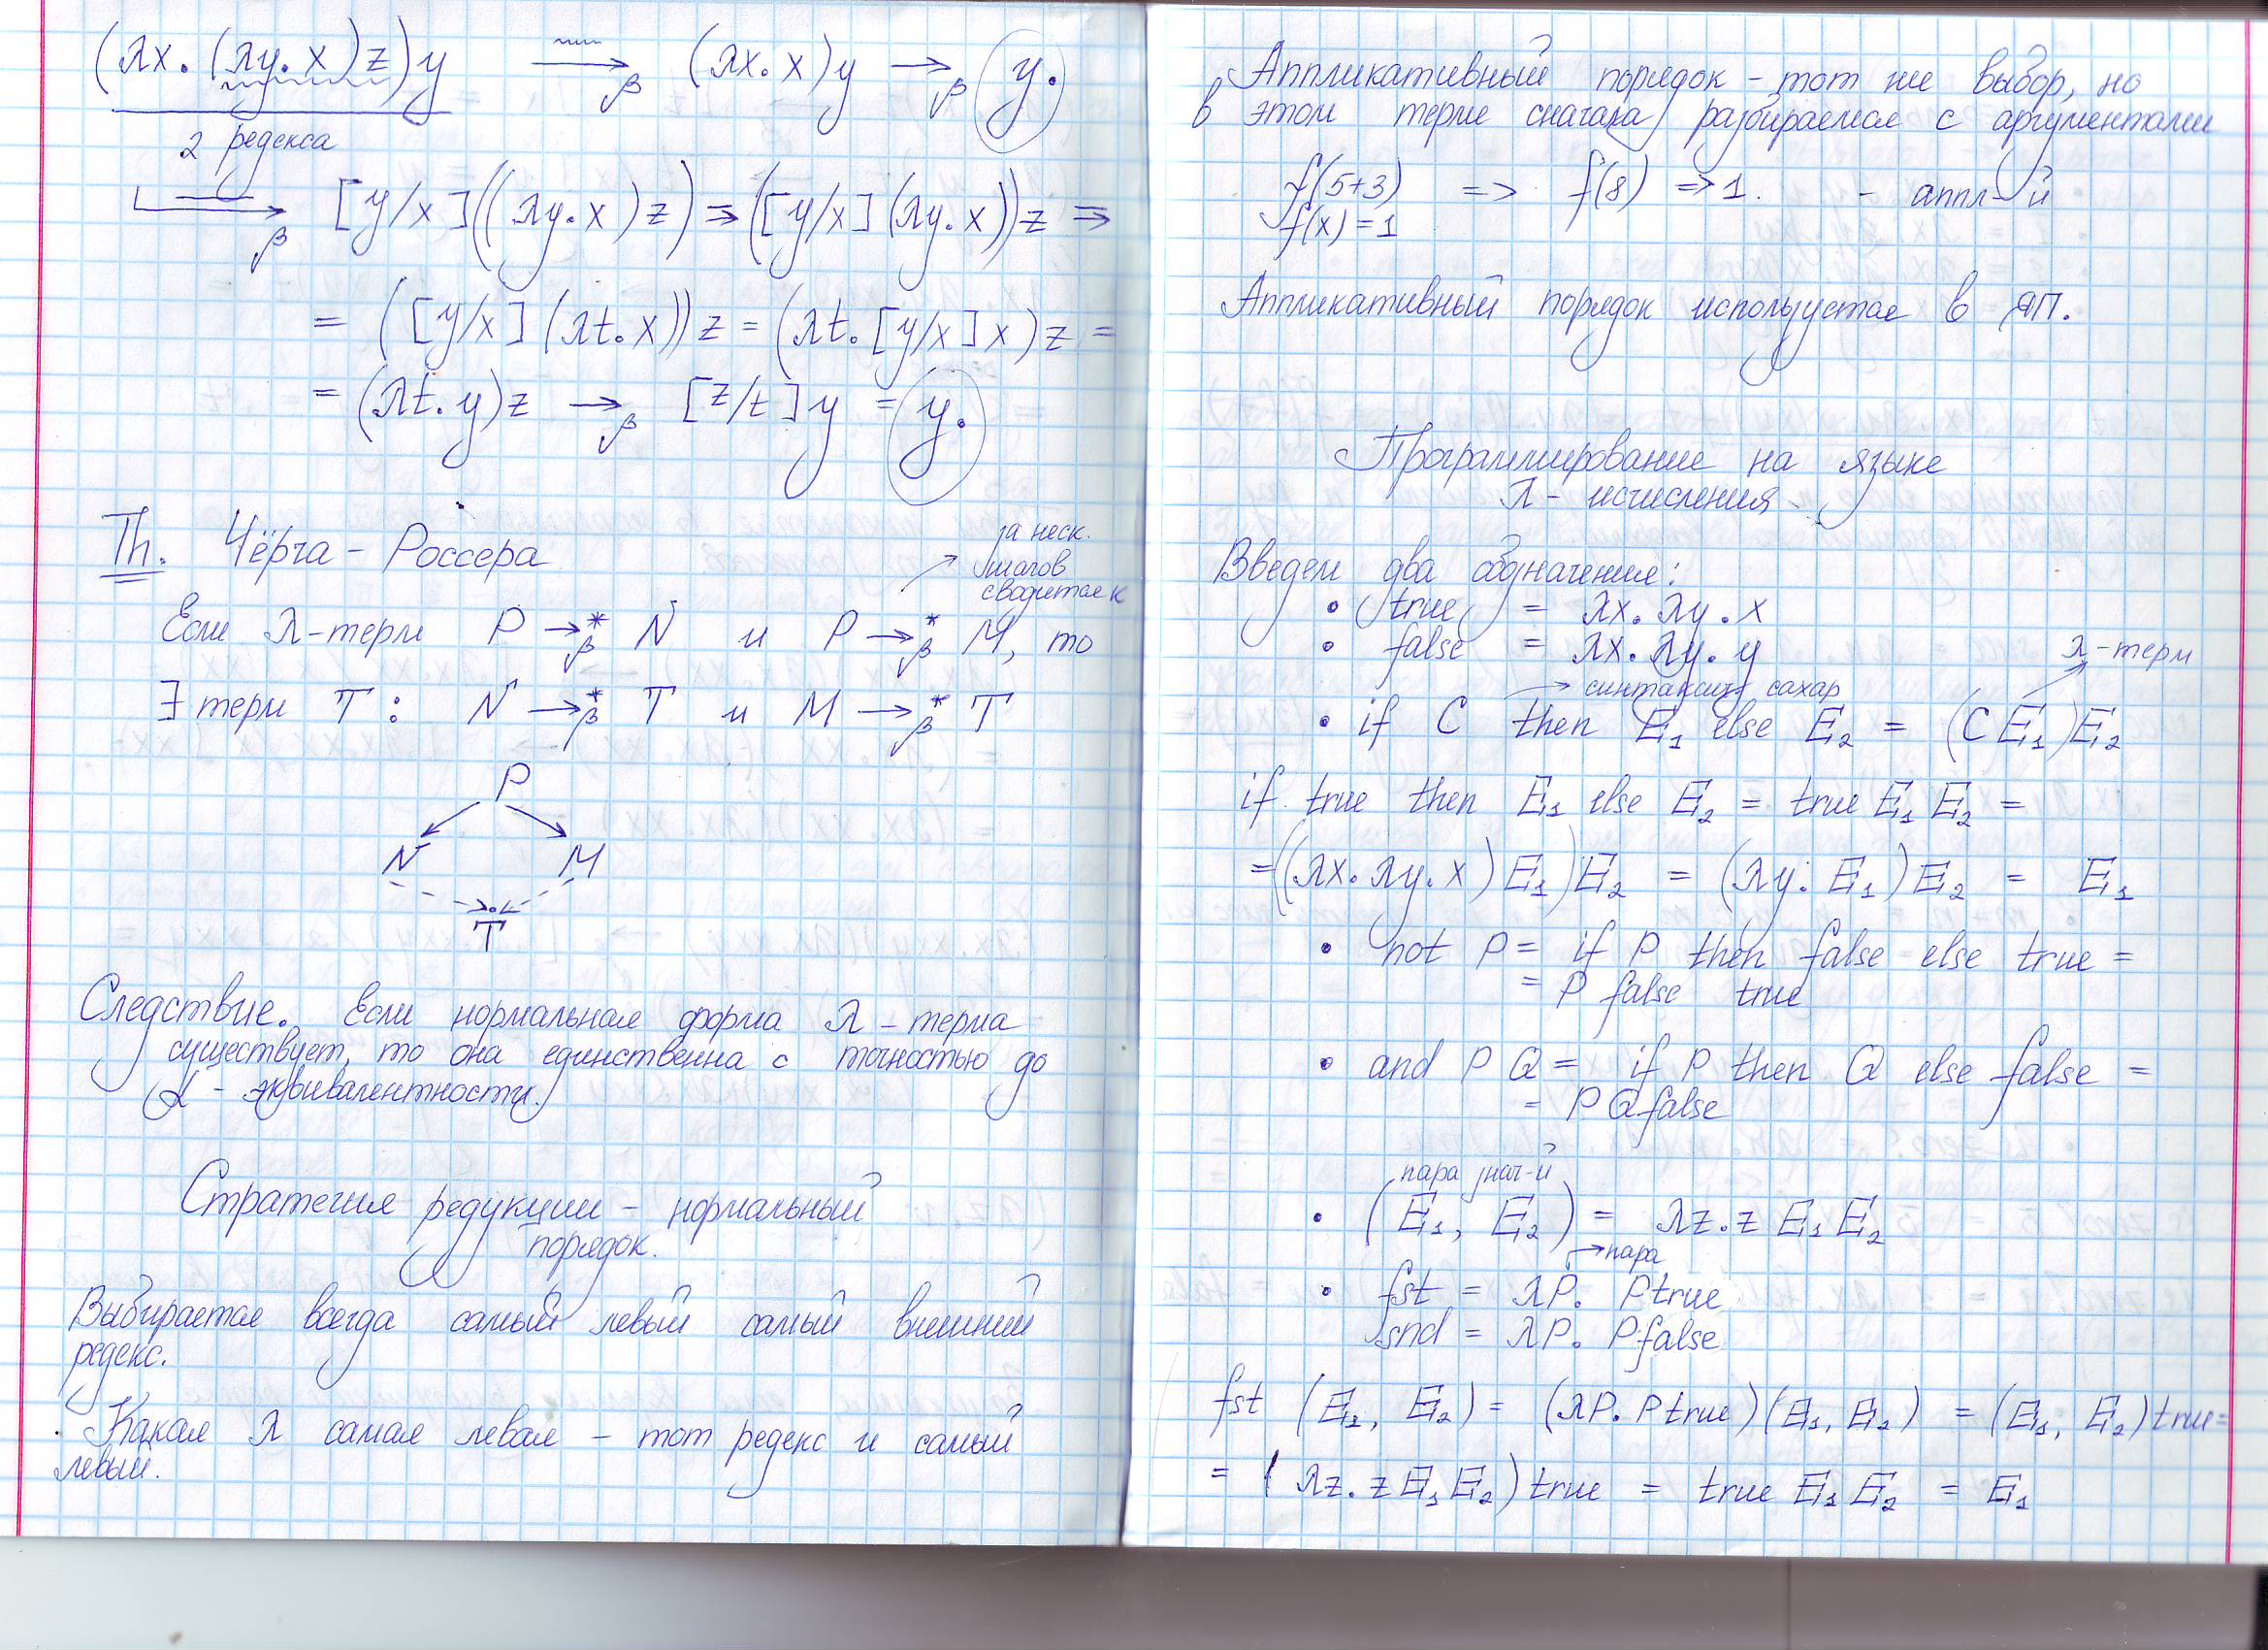 (λx. (λy. x) z) y →β (λx. x) y →β y.
2 редекса
→β [y/x]((λy. x) z) ⇒ ([y/x] (λy. x)) z ⇒
= ([y/x] (λt. x)) z = (λt. [y/x] x) z =
= (λt. y) z →β [z/t] y = y.
Th. Чёрча - Россера
за неск.
шагов
сводится к
Если λ-терм P →*β N и P →*β M, то
∃ терм T : N →*β T и M →*β T
P
N M
T
Следствие. Если нормальная форма λ - терма
существует, то она единственна с точностью до
α - эквивалентности.
Стратегия редукции - нормальный
порядок.
Выбирается всегда самый левый самый внешний
редекс.
Какая λ самая левая - тот редекс и самый
левый.
Аппликативный порядок - тот же выбор, но
в этом терме сначала разбираемся с аргументами
f(5+3) => f(8) => 1. - аппл-й
f(x) = 1
Аппликативный порядок используется в ЯП.
Программирование на языке
λ - исчисления
Введем два обозначения:
• true = λx. λy. x
• false = λx. λy. y
λ-терм
→ синтаксич сахар
• if C then E1 else E2 = (C E1) E2
if true then E1 else E2 = true E1 E2 =
= ((λx. λy. x) E1) E2 = (λy. E1) E2 = E1
• not P = if P then false else true =
= P false true
• and P Q = if P then Q else false =
= P Q false
пара знач-й
• (E1, E2) = λz. z E1 E2
→ пара
• fst = λP. P true
snd = λP. P false
fst (E1, E2) = (λP. P true) (E1, E2) = (E1, E2) true =
= (λz. z E1 E2) true = true E1 E2 = E1